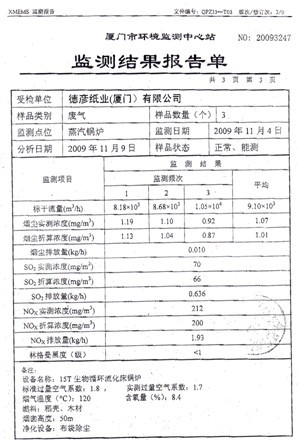 XMEMS 监测报告 文件编号: QPZ33—T03 版次/修订次: 3/0
厦门市环境监测中心站 NO: 20093247
监测结果报告单
共 3 页 第 3 页
受检单位 德彦纸业(厦门）有限公司
样品类别 废气 样品数量（个） 3
监测点位 蒸汽锅炉 监测日期 2009 年 11 月 4 日
分析日期 2009 年 11 月 9 日 样品状态 正常、能测
监测项目 监 测 结 果
监测频次 平均
1 2 3
标干流量(m³/h) 8.18×10³ 8.68×10³ 1.05×10⁴ 9.10×10³
烟尘实测浓度(mg/m³) 1.19 1.10 0.92 1.07
烟尘折算浓度(mg/m³) 1.13 1.04 0.87 1.01
烟尘排放量(kg/h) 0.010
SO₂实测浓度(mg/m³) 70
SO₂折算浓度(mg/m³) 66
SO₂排放量(kg/h) 0.636
NOx实测浓度(mg/m³) 212
NOx折算浓度(mg/m³) 200
NOx排放量(kg/h) 1.93
林格曼黑度（级） <1
备注:
设备名称: 15T 生物循环流化床锅炉
标准过量空气系数: 1.8 ， 实测过量空气系数: 1.7
烟气温度（℃）: 120 含氧量（%）: 8.4
燃料: 稻壳、木材
烟囱高度: 50m
净化设备: 布袋除尘